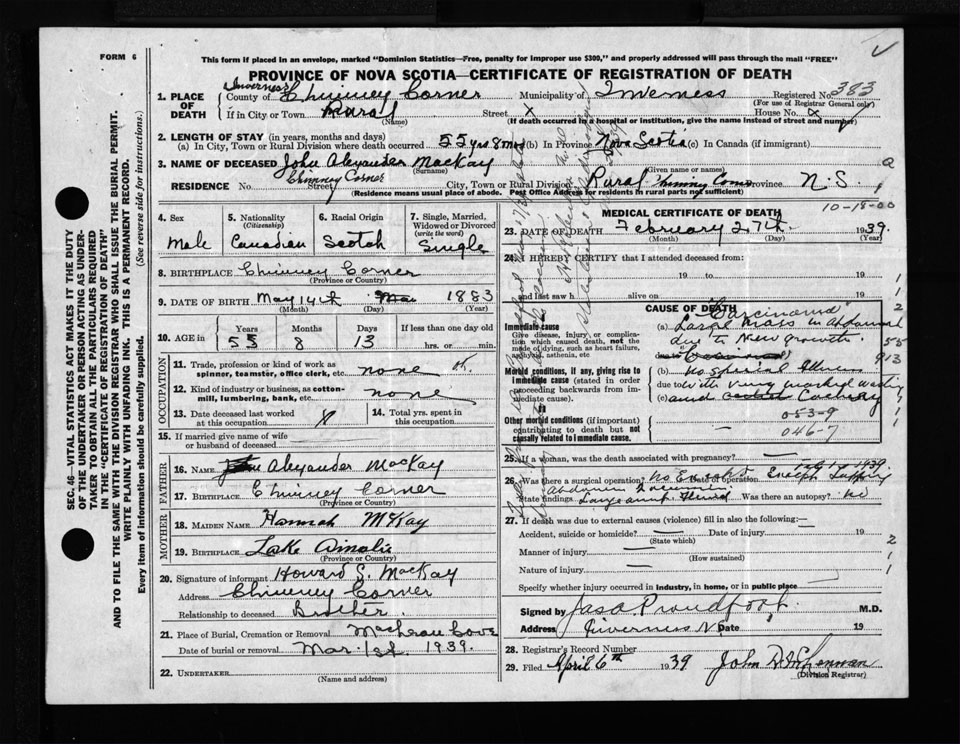 FORM 6
This form if placed in an envelope, marked "Dominion Statistics—Free, penalty for improper use $300," and properly addressed will pass through the mail "FREE"
PROVINCE OF NOVA SCOTIA—CERTIFICATE OF REGISTRATION OF DEATH
SEC. 46—VITAL STATISTICS ACT MAKES IT THE DUTY
OF THE UNDERTAKER OR PERSON ACTING AS UNDER-
TAKER TO OBTAIN ALL THE PARTICULARS REQUIRED
IN THE "CERTIFICATE OF REGISTRATION OF DEATH"
AND TO FILE THE SAME WITH THE DIVISION REGISTRAR WHO SHALL ISSUE THE BURIAL PERMIT.
WRITE PLAINLY WITH UNFADING INK. THIS IS A PERMANENT RECORD.
Every item of information should be carefully supplied. (See reverse side for instructions.)
1. PLACE OF DEATH
Inverness
County of Chimney Corner Municipality of Inverness Registered No. 383
(For use of Registrar General only)
If in City or Town Rural Street x House No.
(Name) (If death occurred in a hospital or institution, give the name instead of street and number)
2. LENGTH OF STAY (in years, months and days)
(a) In City, Town or Rural Division where death occurred 55 yrs 8 mos (b) In Province Nova Scotia (c) In Canada (if immigrant)
3. NAME OF DECEASED John Alexander MacKay
(Surname) (Given name or names)
Chimney Corner
RESIDENCE No. Street City, Town or Rural Division Rural Chimney Corner Province N.S.
(Residence means usual place of abode. Post Office Address for residents in rural parts not sufficient)
4. Sex
Male
5. Nationality
(Citizenship)
Canadian
6. Racial Origin
Scotch
7. Single, Married, Widowed or Divorced
(write the word)
Single
8. BIRTHPLACE Chimney Corner
(Province or Country)
9. DATE OF BIRTH May 14th 1883
(Month) (Day) (Year)
10. AGE in Years Months Days If less than one day old
55 8 13 hrs. or min.
OCCUPATION
11. Trade, profession or kind of work as
spinner, teamster, office clerk, etc. none
12. Kind of industry or business, as cotton-
mill, lumbering, bank, etc. none
13. Date deceased last worked
at this occupation
14. Total yrs. spent in
this occupation
15. If married give name of wife
or husband of deceased
FATHER
16. NAME Alexander MacKay
17. BIRTHPLACE Chimney Corner
(Province or Country)
MOTHER
18. MAIDEN NAME Hannah McKay
19. BIRTHPLACE Lake Ainslie
(Province or Country)
20. Signature of informant Howard S. MacKay
Address Chimney Corner
Relationship to deceased Brother.
21. Place of Burial, Cremation or Removal
Date of burial or removal Mar. 1st. 1939.
22. UNDERTAKER
(Name and address)
10-18-00
MEDICAL CERTIFICATE OF DEATH
23. DATE OF DEATH February 27th 1939.
(Month) (Day)
24. I HEREBY CERTIFY that I attended deceased from:
19 to 19
and last saw h alive on 19
CAUSE OF DEATH
Immediate cause
Give disease, injury, or complica-
tion which caused death, not the
mode of dying, such as heart failure,
asphyxia, asthenia, etc
Morbid conditions, if any, giving rise to
immediate cause (stated in order
proceeding backwards from im-
mediate cause).
Other morbid conditions (if important)
contributing to death but not
causally related to immediate cause.
"Carcinoma"
(a) Large Mass in Abdomen
due to New growth.
(b) No special illness
due to with very marked wasting
(c) and
053-9
046-7
25. If a woman, was the death associated with pregnancy? —
26. Was there a surgical operation? No Except Date of operation Feb 17 1939.
State findings Large amt. Fluid Was there an autopsy? No
27. If death was due to external causes (violence) fill in also the following:—
Accident, suicide or homicide? — Date of injury 19
(State which)
Manner of injury —
(How sustained)
Nature of injury —
Specify whether injury occurred in industry, in home, or in public place
Signed by Jas A Proudfoot M.D.
Address Inverness N.S. Date 19
28. Registrar's Record Number
29. Filed April 6th 1939
(Division Registrar)